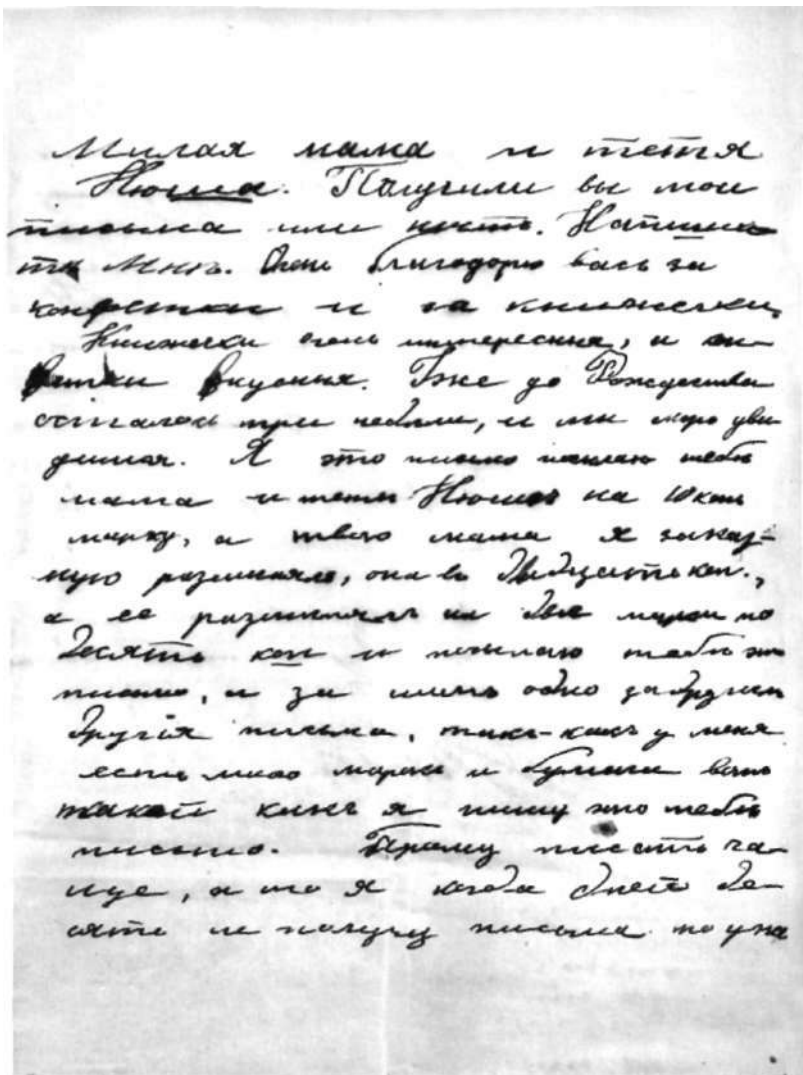 Милая мама и тетя
Нюша. Палучили вы мои
письма или нѣтъ. Напиши
те Мнѣ. Очень благодарю васъ за
конфетки и за книжечки,
Книжечки очень интересныя, и кон-
фетки вкусныя. Уже до Рождества
осталось три недѣли, и мы скоро уви
димся. Я это письмо посылаю тебѣ
мама и тети Нюшѣ на 10 коп
марку, а твою мама я заказ-
ную размѣнялъ, она въ двадцать коп.,
а ее размѣнялъ на две марки по
десять коп и посылаю тебѣ это
письмо, и за нимъ одно за другим
другія письма, такъ-какъ у меня
есть много марокъ и бумаги вотъ
такой какъ я пишу это тебѣ
письмо. Прашу писать ча-
ще, а то я когда дней де-
сять не получу письма то